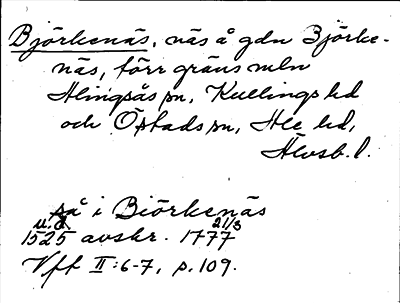 Björkenäs, näs å gdn Björke-
näs, förr gräns mln
Alingsås sn, Kullings hd
och Östads sn, Ale hd,
Älvsb. l.
på i Biörkenäs
u. å 21/3
1525 avskr. 1777
Vff II:6-7, p. 109.